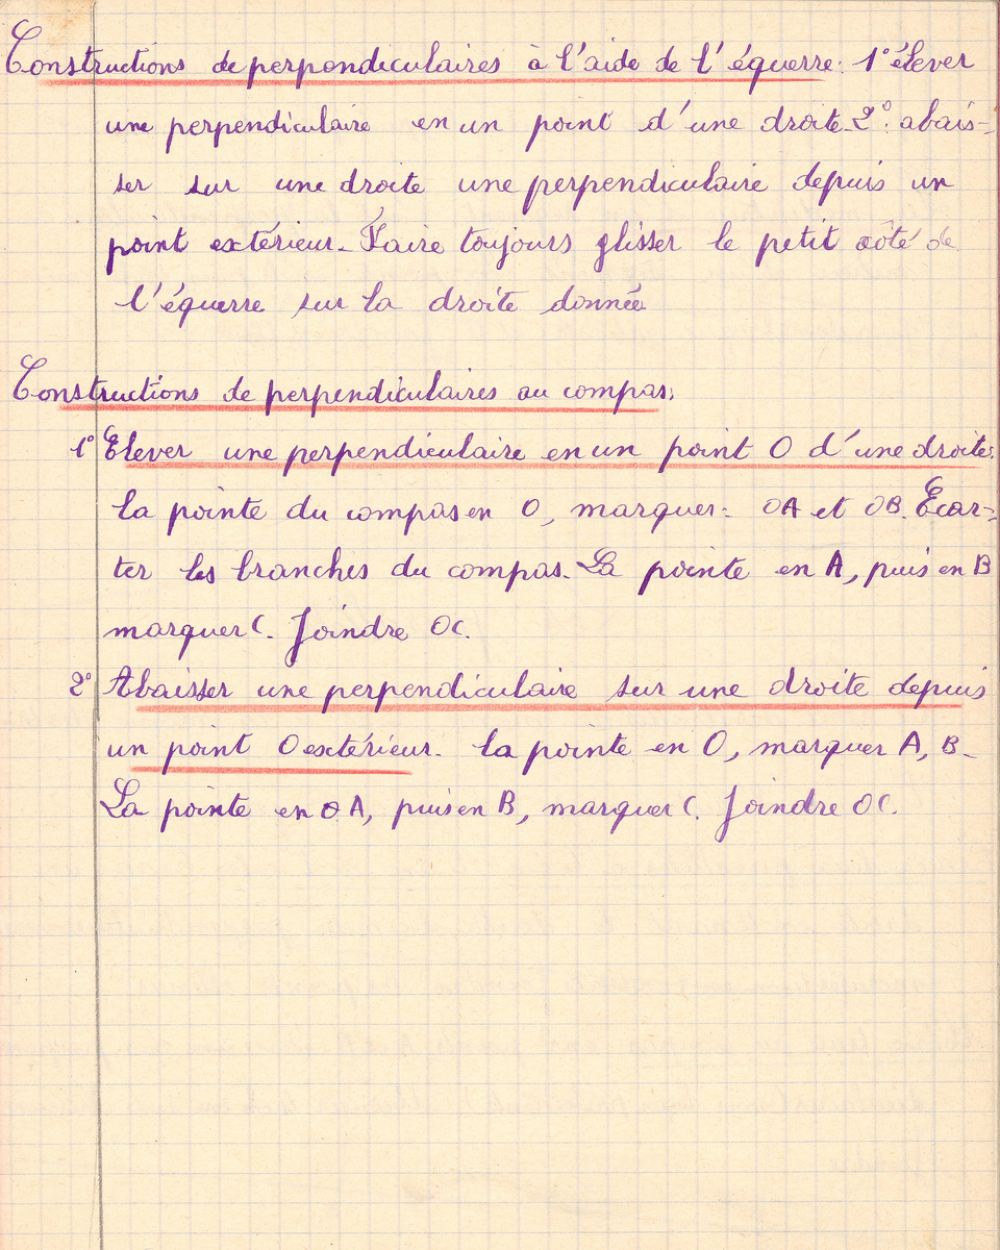 Constructions de perpendiculaires à l'aide de l'équerre: 1° élever
une perpendiculaire en un point d'une droite. 2°: abais-
ser sur une droite une perpendiculaire depuis un
point extérieur. Faire toujours glisser le petit côté de
l'équerre sur la droite donnée
Constructions de perpendiculaires au compas:
1° Elever une perpendiculaire en un point O d'une droite:
la pointe du compas en O, marquer: OA et OB. Écar-
ter les branches du compas. La pointe en A, puis en B
marquer C. Joindre OC.
2° Abaisser une perpendiculaire sur une droite depuis
un point O extérieur. la pointe en O, marquer A, B.
La pointe en A, puis en B, marquer C. Joindre OC.